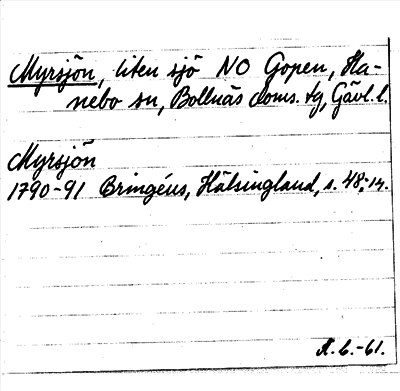 Myrsjön, liten sjö NO Gopen, Ha-
nebo sn, Bollnäs doms. tg, Gävl. l.
Myrsjön
1790-91 Bringéus, Hälsingland, s. 48,
-61.